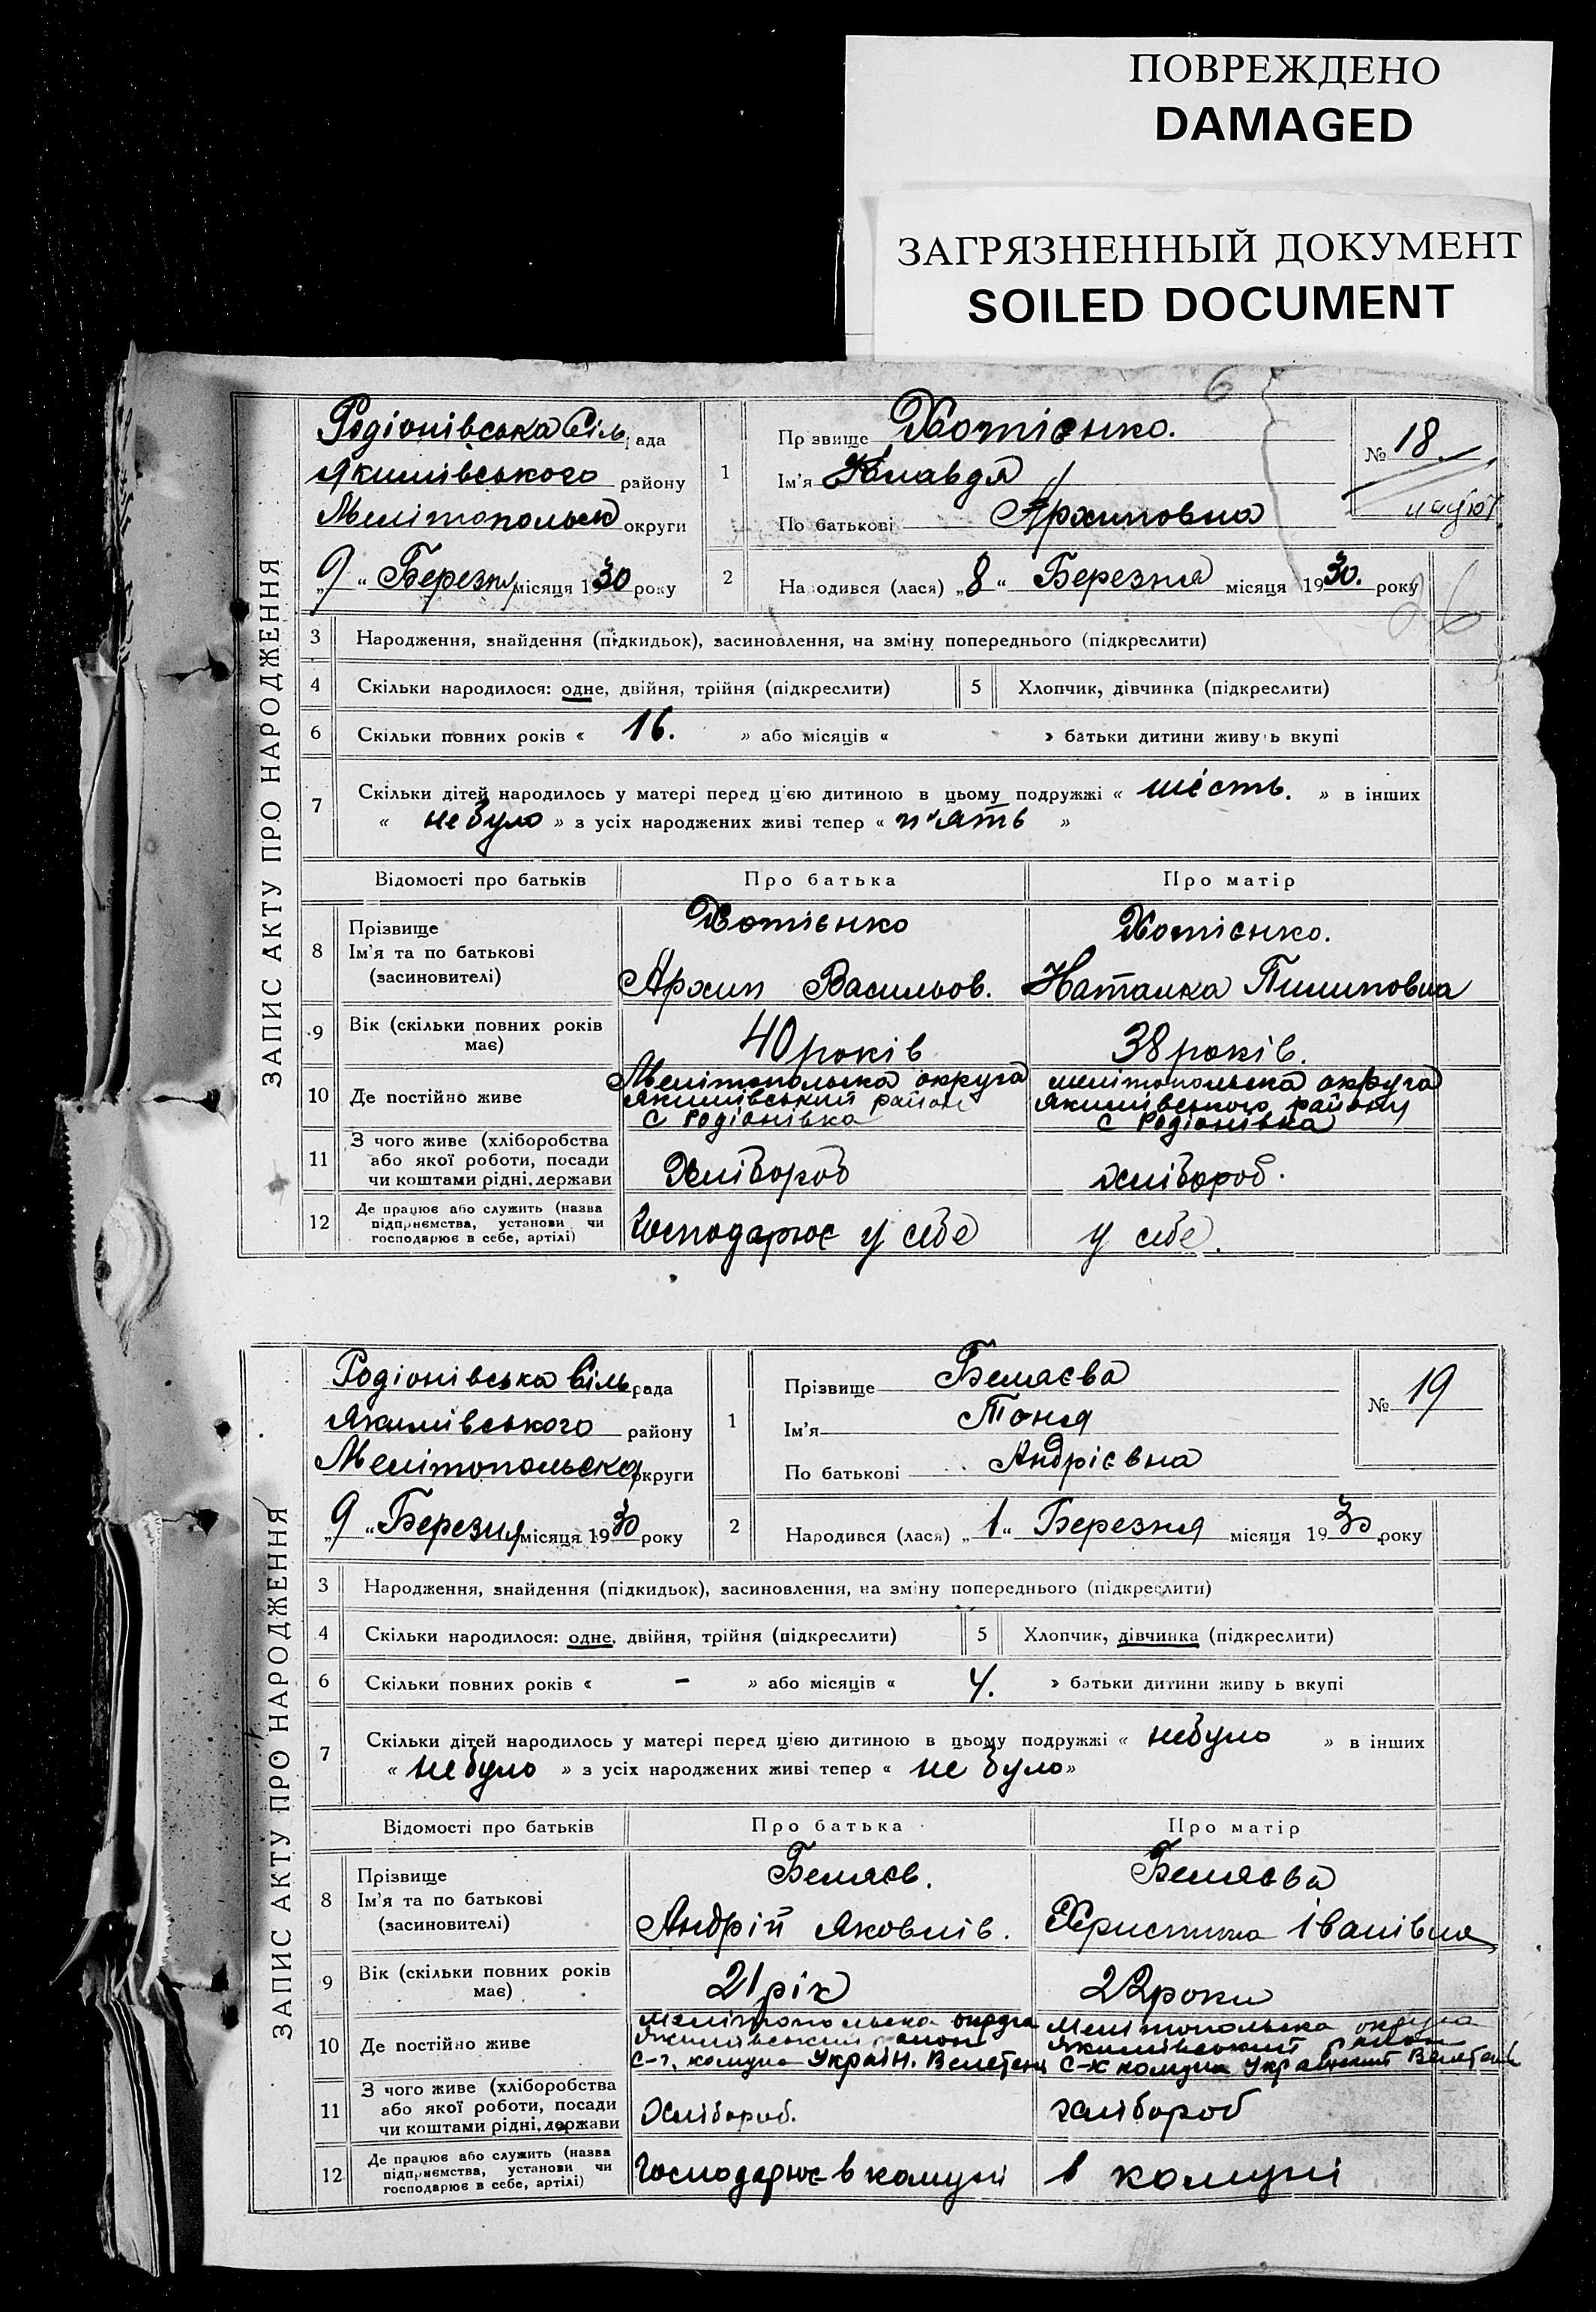 ПОВРЕЖДЕНО
DAMAGED
ЗАГРЯЗНЕННЫЙ ДОКУМЕНТ
SOILED DOCUMENT
6
ЗАПИС АКТУ ПРО НАРОДЖЕННЯ
Родіонівська Сіль ада
Якимівського району
Мелітопольск округи
„9“ Березня місяця 1930 року
1 Пр звище Хотієнко.
Ім'я Клавдя
По батькові Архиповна
№ 18
2 На одився (лася) „8“ Березня місяця 1930. року
26
3 Народження, знайдення (підкидьок), засиновлення, на зміну попереднього (підкреслити)
4 Скільки народилося: одне, двійня, трійня (підкреслити) 5 Хлопчик, дівчинка (підкреслити)
6 Скільки повних років « 16. » або місяців « » батьки дитини живу ь вкупі
7 Скільки дітей народилось у матері перед цією дитиною в цьому подружжі « шість. » в інших
« не було » з усіх народжених живі тепер « п'ять »
Відомості про батьків Про батька Про матір
8 Прізвище Ім'я та по батькові (засиновителі) Хотієнко Хотієнко.
Архип Васильов. Наталка Пилиповна
9 Вік (скільки повних років має) 40 років 38 років.
10 Де постійно живе Мелітопольська округа Якимівський район С Родіонівка мелітопольська округа Якимівського району С Родіонівка
11 З чого живе (хліборобства або якої роботи, посади чи коштами рідні, держави Хлібороб хлібороб.
12 Де працює або служить (назва підприємства, установи чи господарює в себе, артілі) Господарює у себе у себе.
ЗАПИС АКТУ ПРО НАРОДЖЕННЯ
Родіонівська Сіль рада
Якимівського району
Мелітопольська округи
„9“ Березня місяця 1930 року
1 Прізвище Беляєва
Ім'я Тоня
По батькові Андрієвна
№ 19
2 Народився (лася) „1“ Березня місяця 1930 року
3 Народження, знайдення (підкидьок), засиновлення, на зміну попереднього (підкреслити)
4 Скільки народилося: одне, двійня, трійня (підкреслити) 5 Хлопчик, дівчинка (підкреслити)
6 Скільки повних років « - » або місяців « 4. » батьки дитини живу ь вкупі
7 Скільки дітей народилось у матері перед цією дитиною в цьому подружжі « небуло » в інших
« не було » з усіх народжених живі тепер « не було»
Відомості про батьків Про батька Про матір
8 Прізвище Ім'я та по батькові (засиновителі) Беляєв. Беляєва
Андрій Яковлів. Христина Іванівна
9 Вік (скільки повних років має) 21 рік 22 роки
10 Де постійно живе Мелітопольська округа Якимівський район С-г. комуна Україн. Велетень Мелітопольська округа Якимівський район С-х комуна Український Велетень
11 З чого живе (хліборобства або якої роботи, посади чи коштами рідні, держави Хлібороб. хлібороб
12 Де працює або служить (назва підприємства, установи чи господарює в себе, артілі) Господарює в комуні в комуні